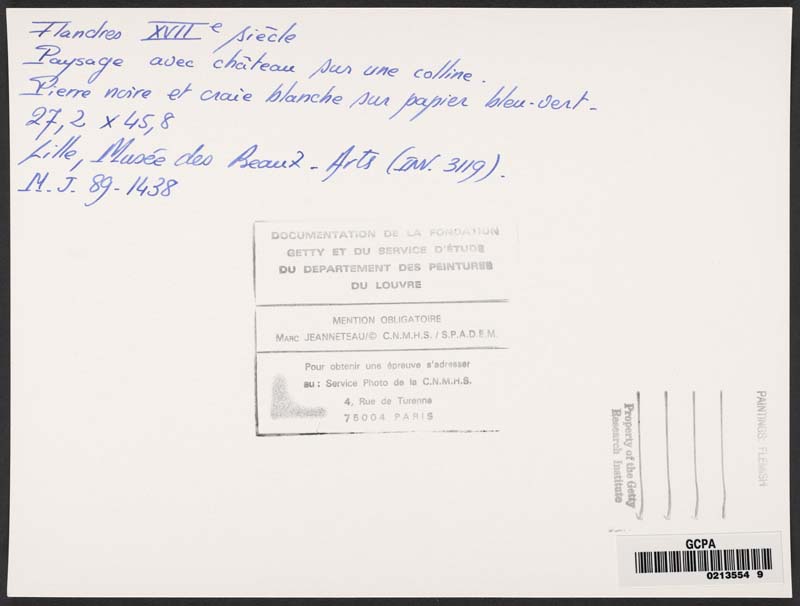 Flandres XVIIe siècle
Paysage avec château sur une colline.
Pierre noire et craie blanche sur papier bleu-vert -
27,2 x 45,8
Lille, Musée des Beaux-Arts (INV. 3119).
M. J. 89-1438
DOCUMENTATION DE LA FONDATION
GETTY ET DU SERVICE D'ÉTUDE
DU DEPARTEMENT DES PEINTURES
DU LOUVRE
MENTION OBLIGATOIRE
MARC JEANNETEAU/© C.N.M.H.S. / S.P.A.D.E.M.
Pour obtenir une épreuve s'adresser
au : Service Photo de la C.N.M.H.S.
4, Rue de Turenne
75004 PARIS
Property of the Getty
Research Institute
PAINTINGS: FLEMISH
GCPA
0213554 9